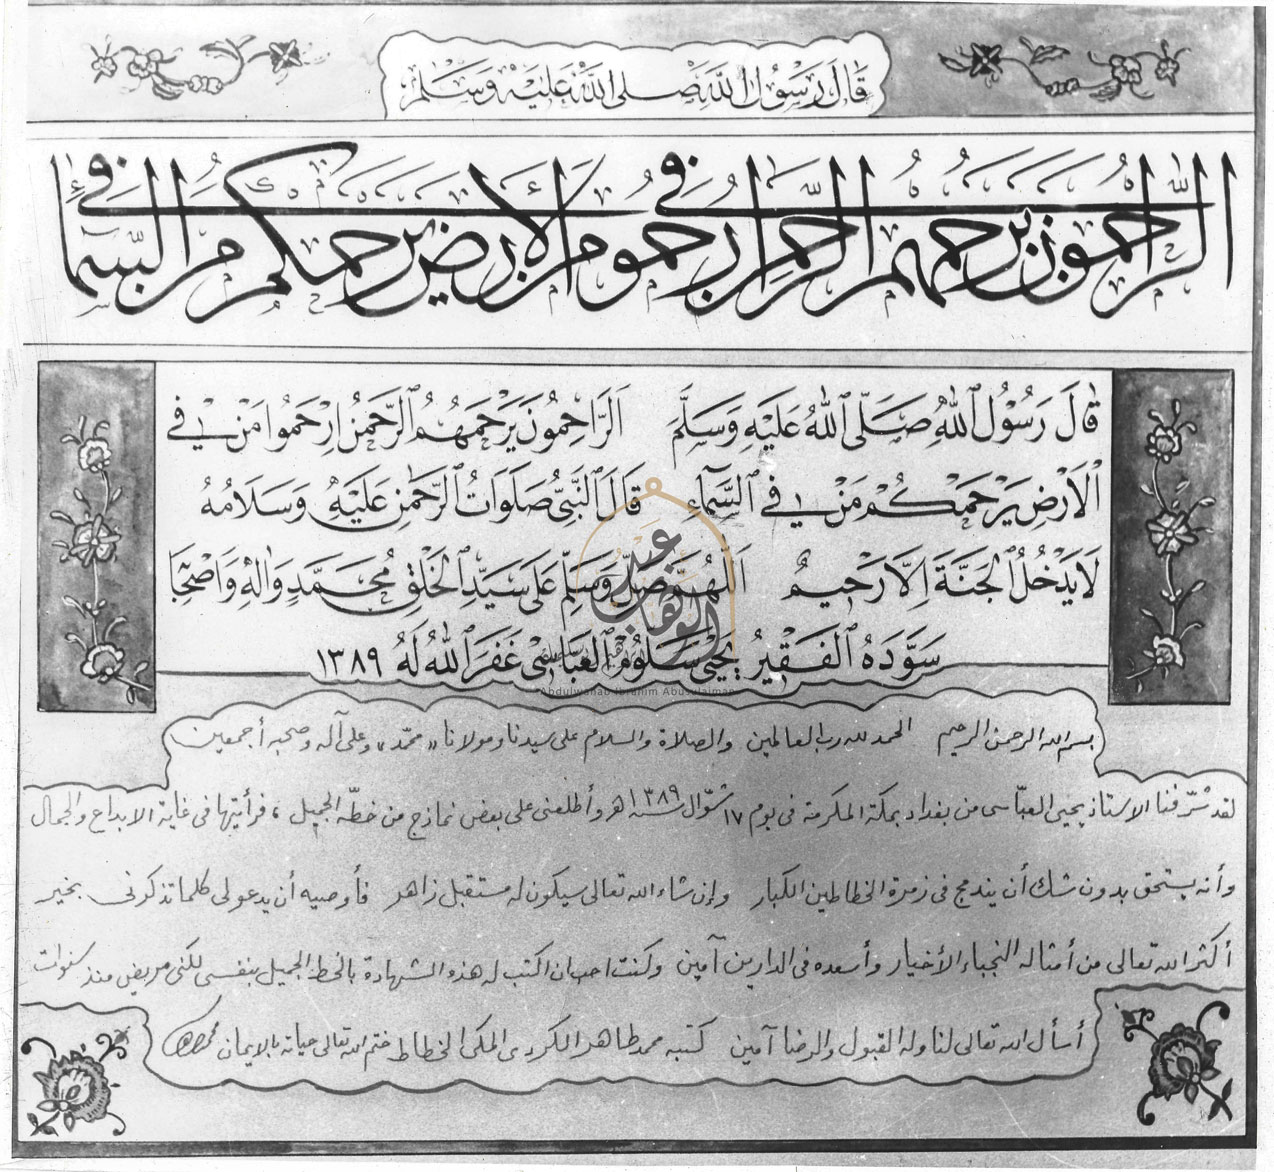 قَالَ رَسُولُ اللّٰهِ صَلَّى اللّٰهُ عَلَيْهِ وَسَلَّمَ
الراحمون يرحمهم الرحمن ارحموا من في الأرض يرحمكم من في السماء
قَالَ رَسُوْلُ اللّٰهِ صَلَّى اللّٰهُ عَلَيْهِ وَسَلَّمَ اَلرَّاحِمُونَ يَرْحَمُهُمُ الرَّحْمٰنُ اِرْحَمُوا مَنْ فِي
الْاَرْضِ يَرْحَمْكُمْ مَنْ فِي السَّمَآءِ قَالَ النَّبِيُّ صَلَوَاتُ الرَّحْمٰنِ عَلَيْهِ وَسَلَامُهُ
لَا يَدْخُلُ الْجَنَّةَ اِلَّا رَحِيمٌ اَللّٰهُمَّ صَلِّ وَسَلِّمْ عَلَى سَيِّدِ الْخَلْقِ مُحَمَّدٍ وَاٰلِهِ وَاَصْحَابِهِ
سَوَّدَهُ الْفَقِيْرُ يَحْيٰى سَلُّوْمْ الْعَبَّاسِيْ غَفَرَ اللّٰهُ لَهُ ١٣٨٩
عبد الوهاب
Abdulwahab Ibrahim Abusulaiman
بسم الله الرحمن الرحيم الحمد لله رب العالمين والصلاة والسلام على سيدنا ومولانا «محمّد» وعلى آله وصحبه أجمعين
لقد شرّفنا الاستاذ يحيى العبّاسى من بغداد بمكة المكرمة فى يوم ١٧ شوّال سنة ١٣٨٩ هـ وأطلعنى على بعض نماذج من خطّه الجميل ، فرأيتها فى غاية الابداع والجمال
وأنه يستحق بدون شك أن يندمج فى زمرة الخطاطين الكبار وإن شاء الله تعالى سيكون له مستقبل زاهر فأوصيه أن يدعو لى كلما تذكرنى بخير
أكثر الله تعالى من أمثاله النجباء الأخيار وأسعده فى الدارين آمين وكنت احب ان اكتب له هذه الشهادة بالخط الجميل بنفسى لكنى مريض منذ سنوات
أسأل الله تعالى لنا وله القبول والرضا آمين كتبه محمد طاهر الكردى المكى الخطاط ختم الله تعالى حياته بالايمان